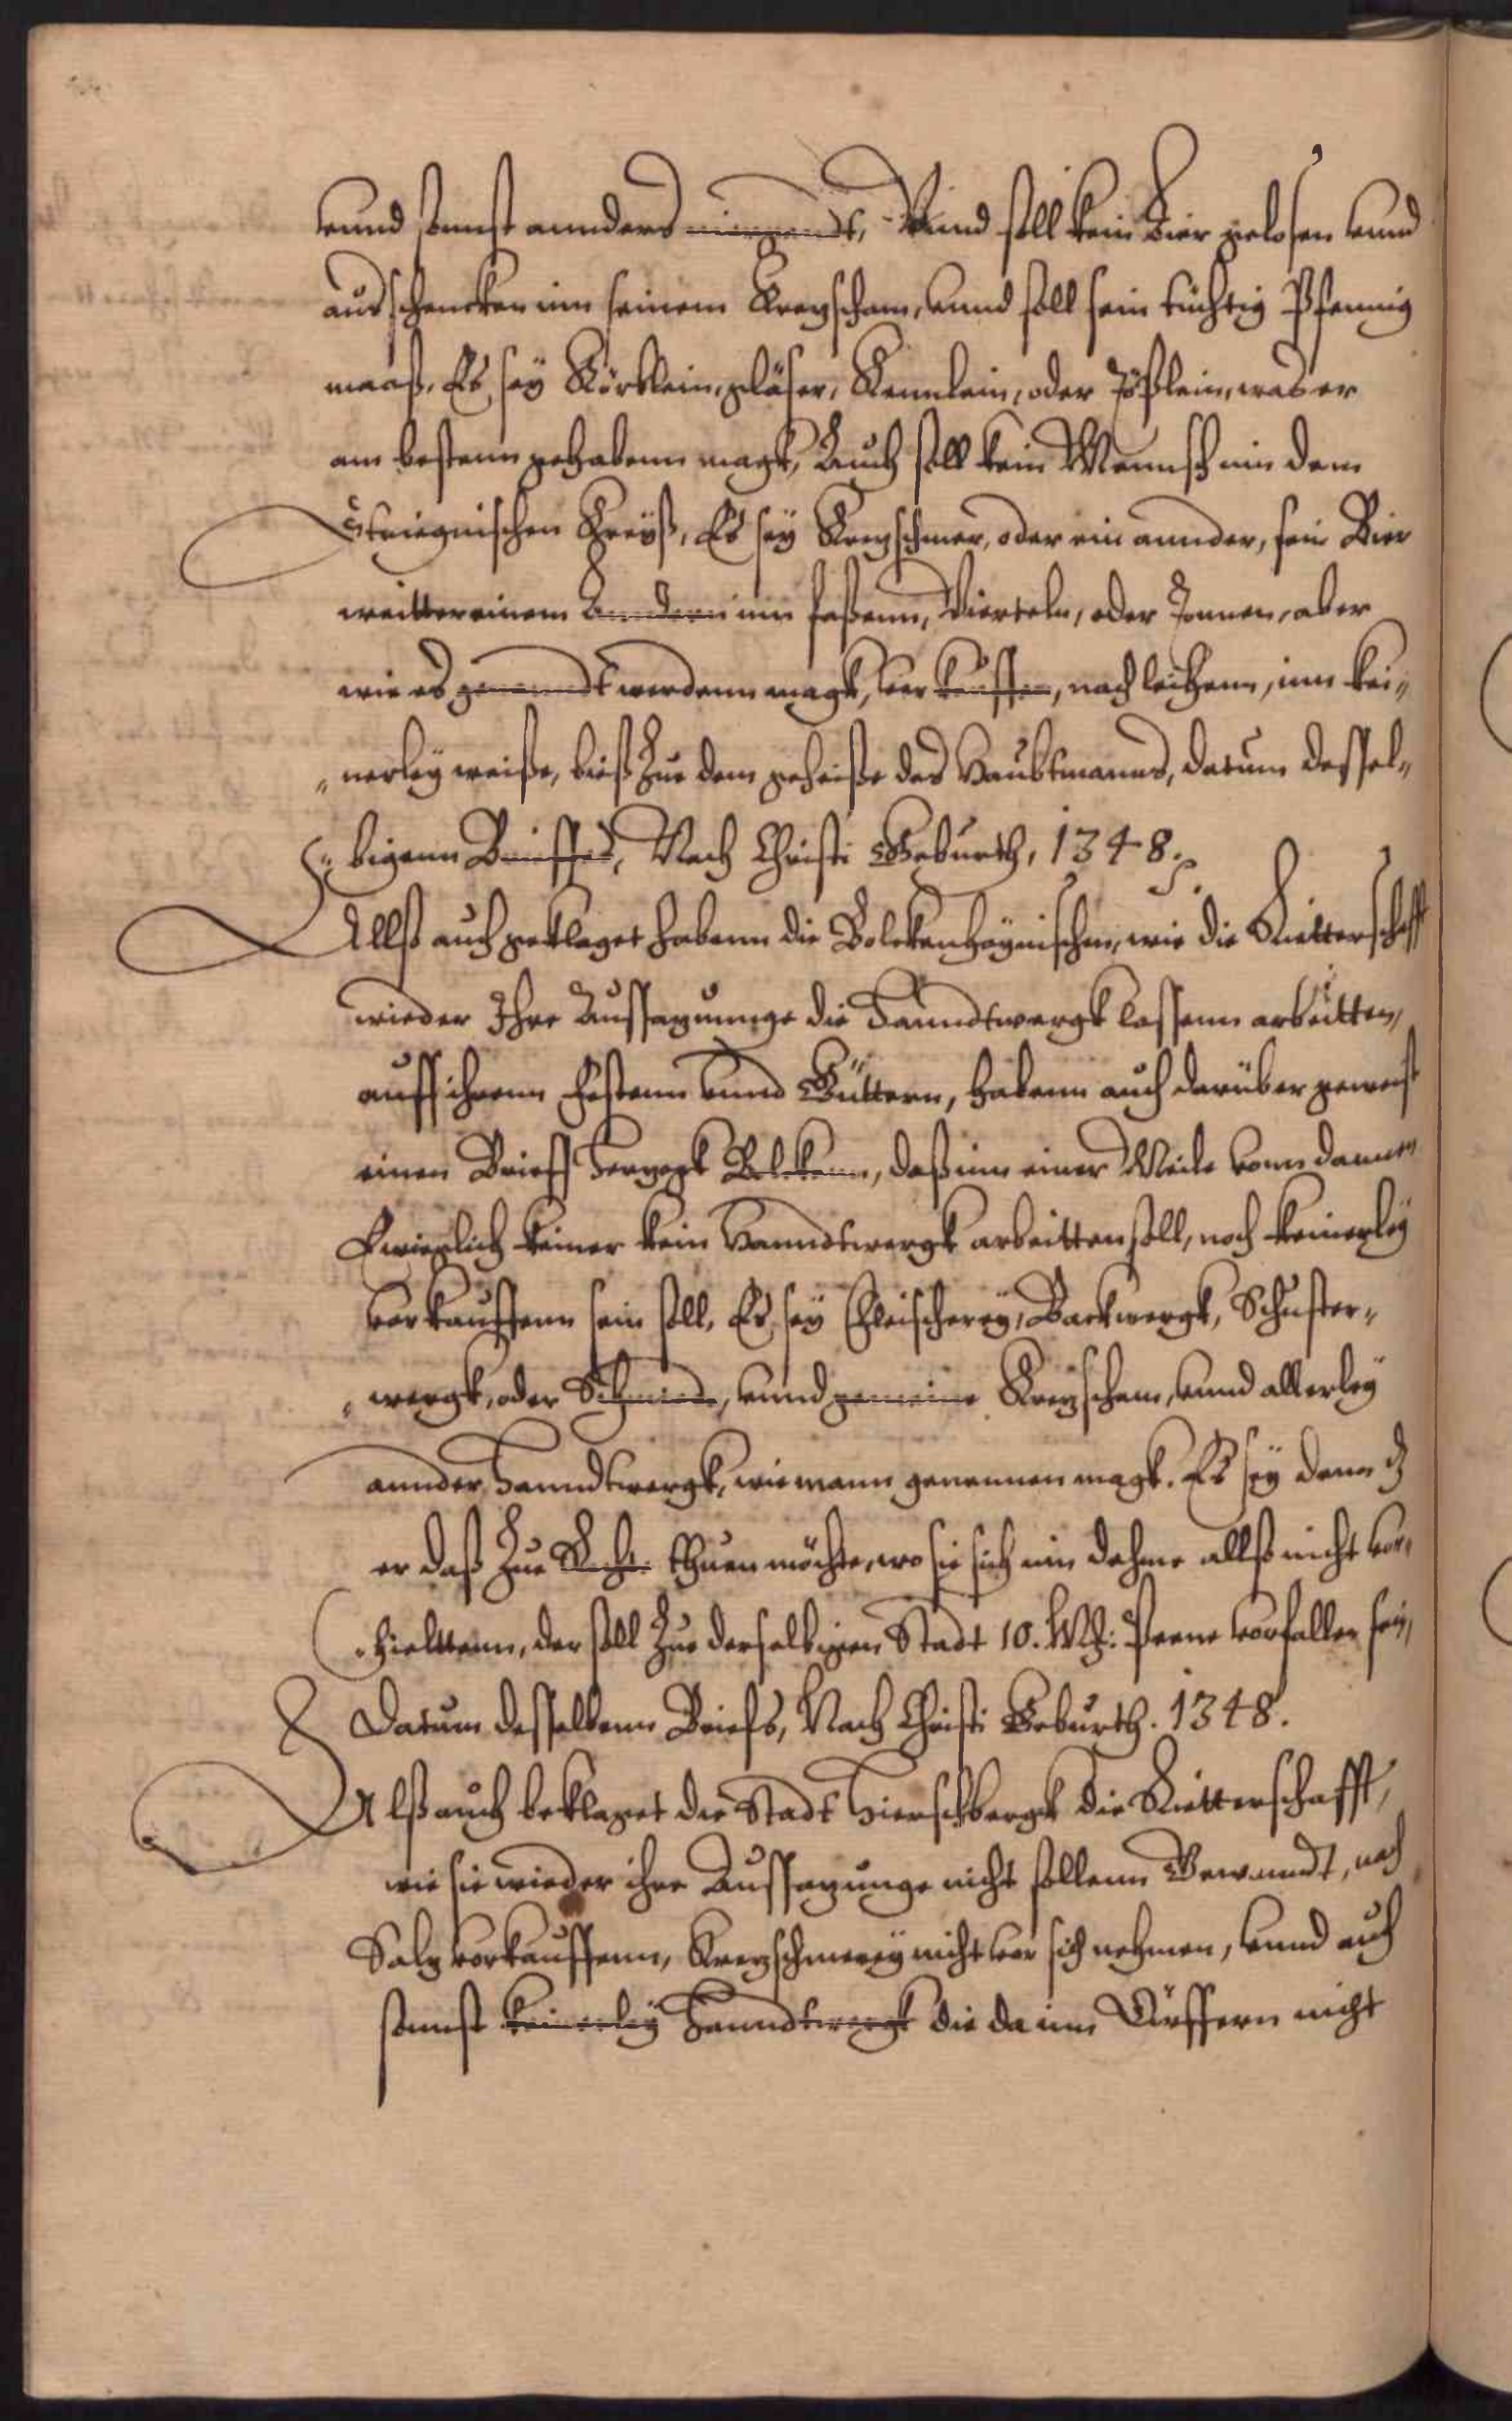 vnnd sonnst annders niemandt, Vnnd soll kein Bier gelosen vnnd
ausschencken inn seinem Kreyscham, vnnd soll sein tüchtig Pfennig
maaß, Es sey Körblein, gläser, Kennlein, oder Töpflein, was er
am bestenn gehabenn magk, Auch soll kein Mennsch inn dem
Striegnischen Creyß, Es sey Kreyschmer, oder ein annder, sein Bier
weitter einem Andern inn faßenn, Vierteln, oder Tonnen, aber
wie es genanndt werdenn magk, ver kauffen, noch leihenn, inn kei„
„nerley weiße, bieß Zue dem geheiße des Haubtmanns, datum dessel„
„bigenn Brieffes, Nach Christi Geburth, 1348.
Allß auch geklaget habenn die Bolckenhaynischen, wie die Ritterschafft
wieder Ihre Aussagunge die Hanndtwergk lassenn arbeitten,
auff ihrenn Festenn vnnd Güttern, habenn auch darüber geweist
einen Brieff Hertzogk Bolkenn, daß inn einer Meile vonn dannen
Ewiglich keiner kein Hanndtwergk arbeitten soll, noch keinerley
verkauffenn sein soll, Es sey Fleischerey, Backwergk, Schuster„
„wergk, oder Schmiede, vnnd gemeine Kreyscham, vnnd allerley
annder Hanndtwergk, wie mann genennen magk. Es sey dann dz
er daß Zue Recht thuen möchte, wo sie sich inn dehme allß nicht vor„
„hieltenn, der soll Zue derselbigen Stadt 10. Mk: Peene vorfallen sein,
Datum desselbenn Briefs, Nach Christi Geburth. 1348.
Alß auch beklaget die Stadt Hierschbergk die Ritterschafft,
wie sie wieder ihre Aussagunge nicht sollenn Gewanndt, noch
Saltz vorkauffenn, Kreyschmerey nicht vor sich nehmen, vnnd auch
sonnst keinerley Hanndtwergk die da inn Dörffern nicht